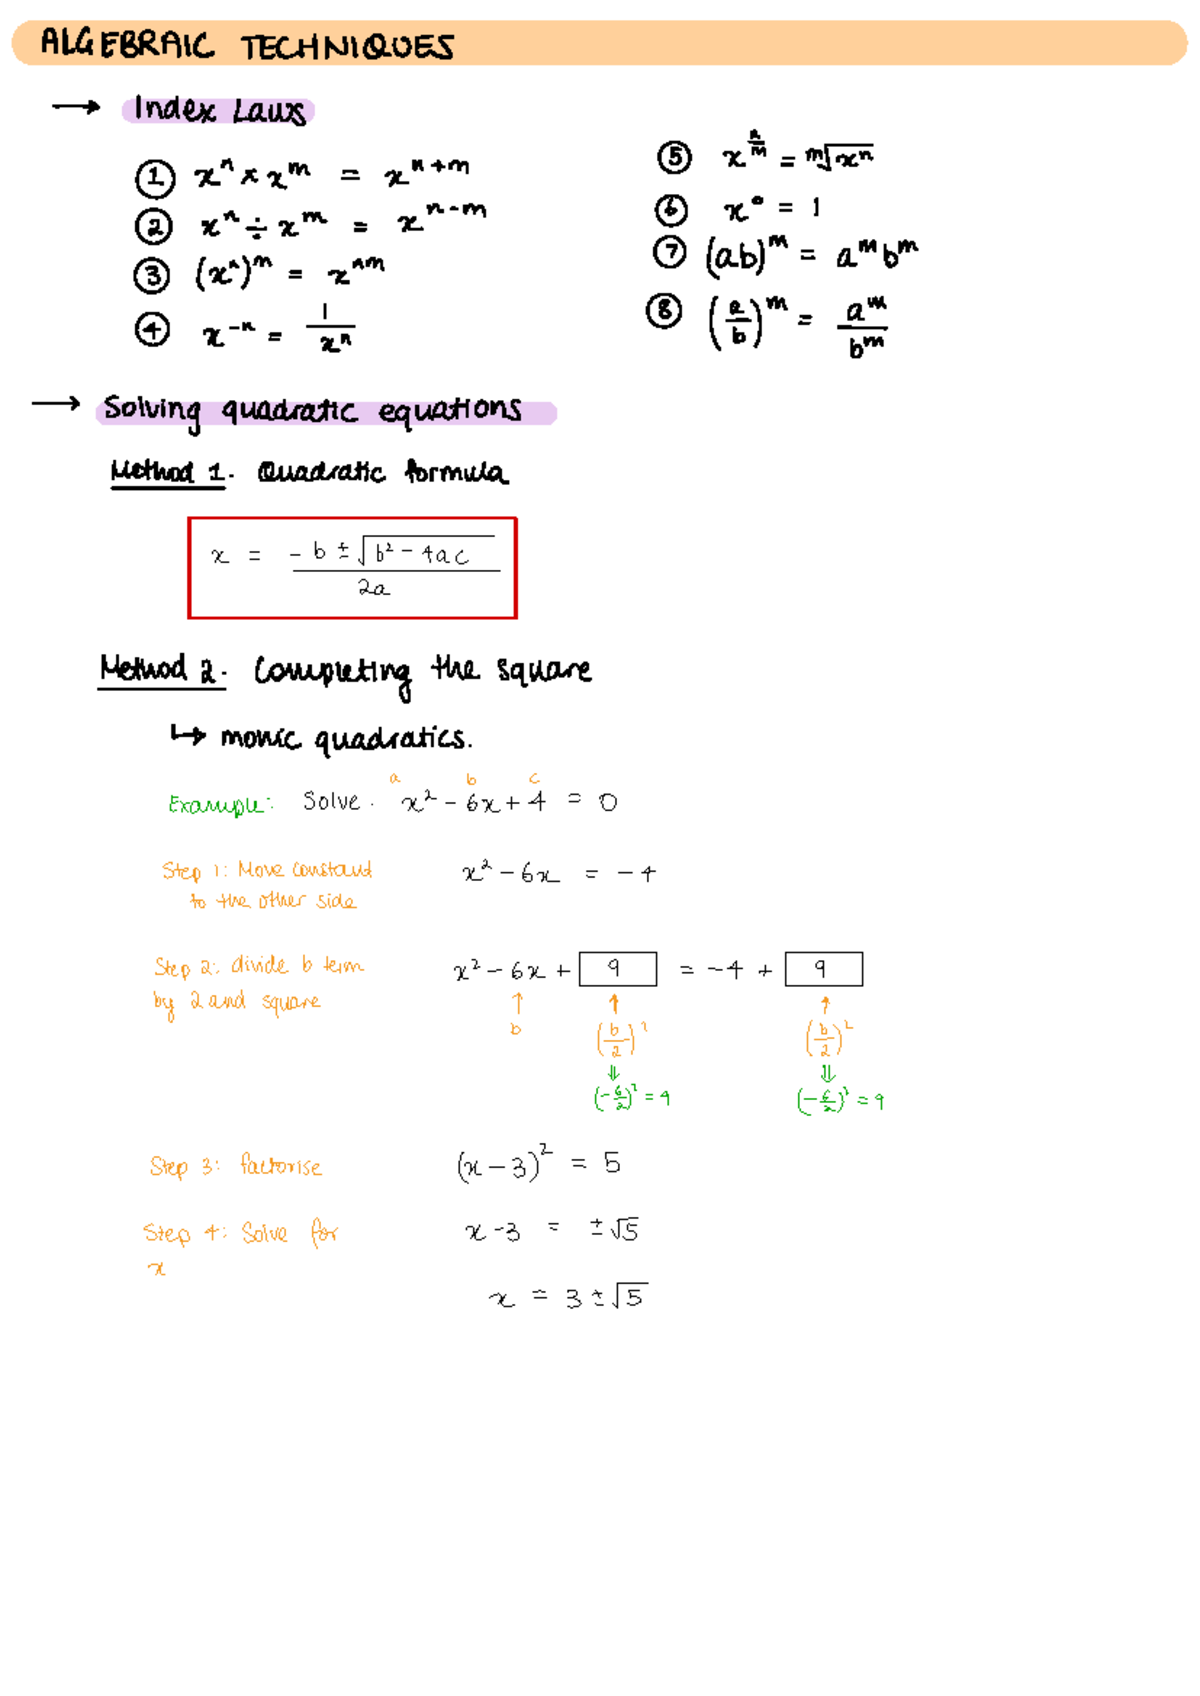 ALGEBRAIC TECHNIQUES
→ Index Laws
① xⁿ × xᵐ = xⁿ⁺ᵐ
② xⁿ ÷ xᵐ = xⁿ⁻ᵐ
③ (xⁿ)ᵐ = xⁿᵐ
④ x⁻ⁿ = 1/xⁿ
⑤ x^(n/m) = ᵐ√xⁿ
⑥ x⁰ = 1
⑦ (ab)ᵐ = aᵐbᵐ
⑧ (a/b)ᵐ = aᵐ/bᵐ
→ Solving quadratic equations
Method 1. Quadratic formula
x = (-b ± √(b² - 4ac))/2a
Method 2. Completing the square
↳ monic quadratics.
a b c
Example: Solve. x² - 6x + 4 = 0
Step 1: Move constant x² - 6x = -4
to the other side
Step 2: divide b term x² - 6x + 9 = -4 + 9
by 2 and square ↑ ↑ ↑
b (b/2)² (b/2)²
⇓ ⇓
(-6/2)² = 9 (-6/2)² = 9
Step 3: factorise (x - 3)² = 5
Step 4: Solve for x - 3 = ±√5
x
x = 3 ± √5